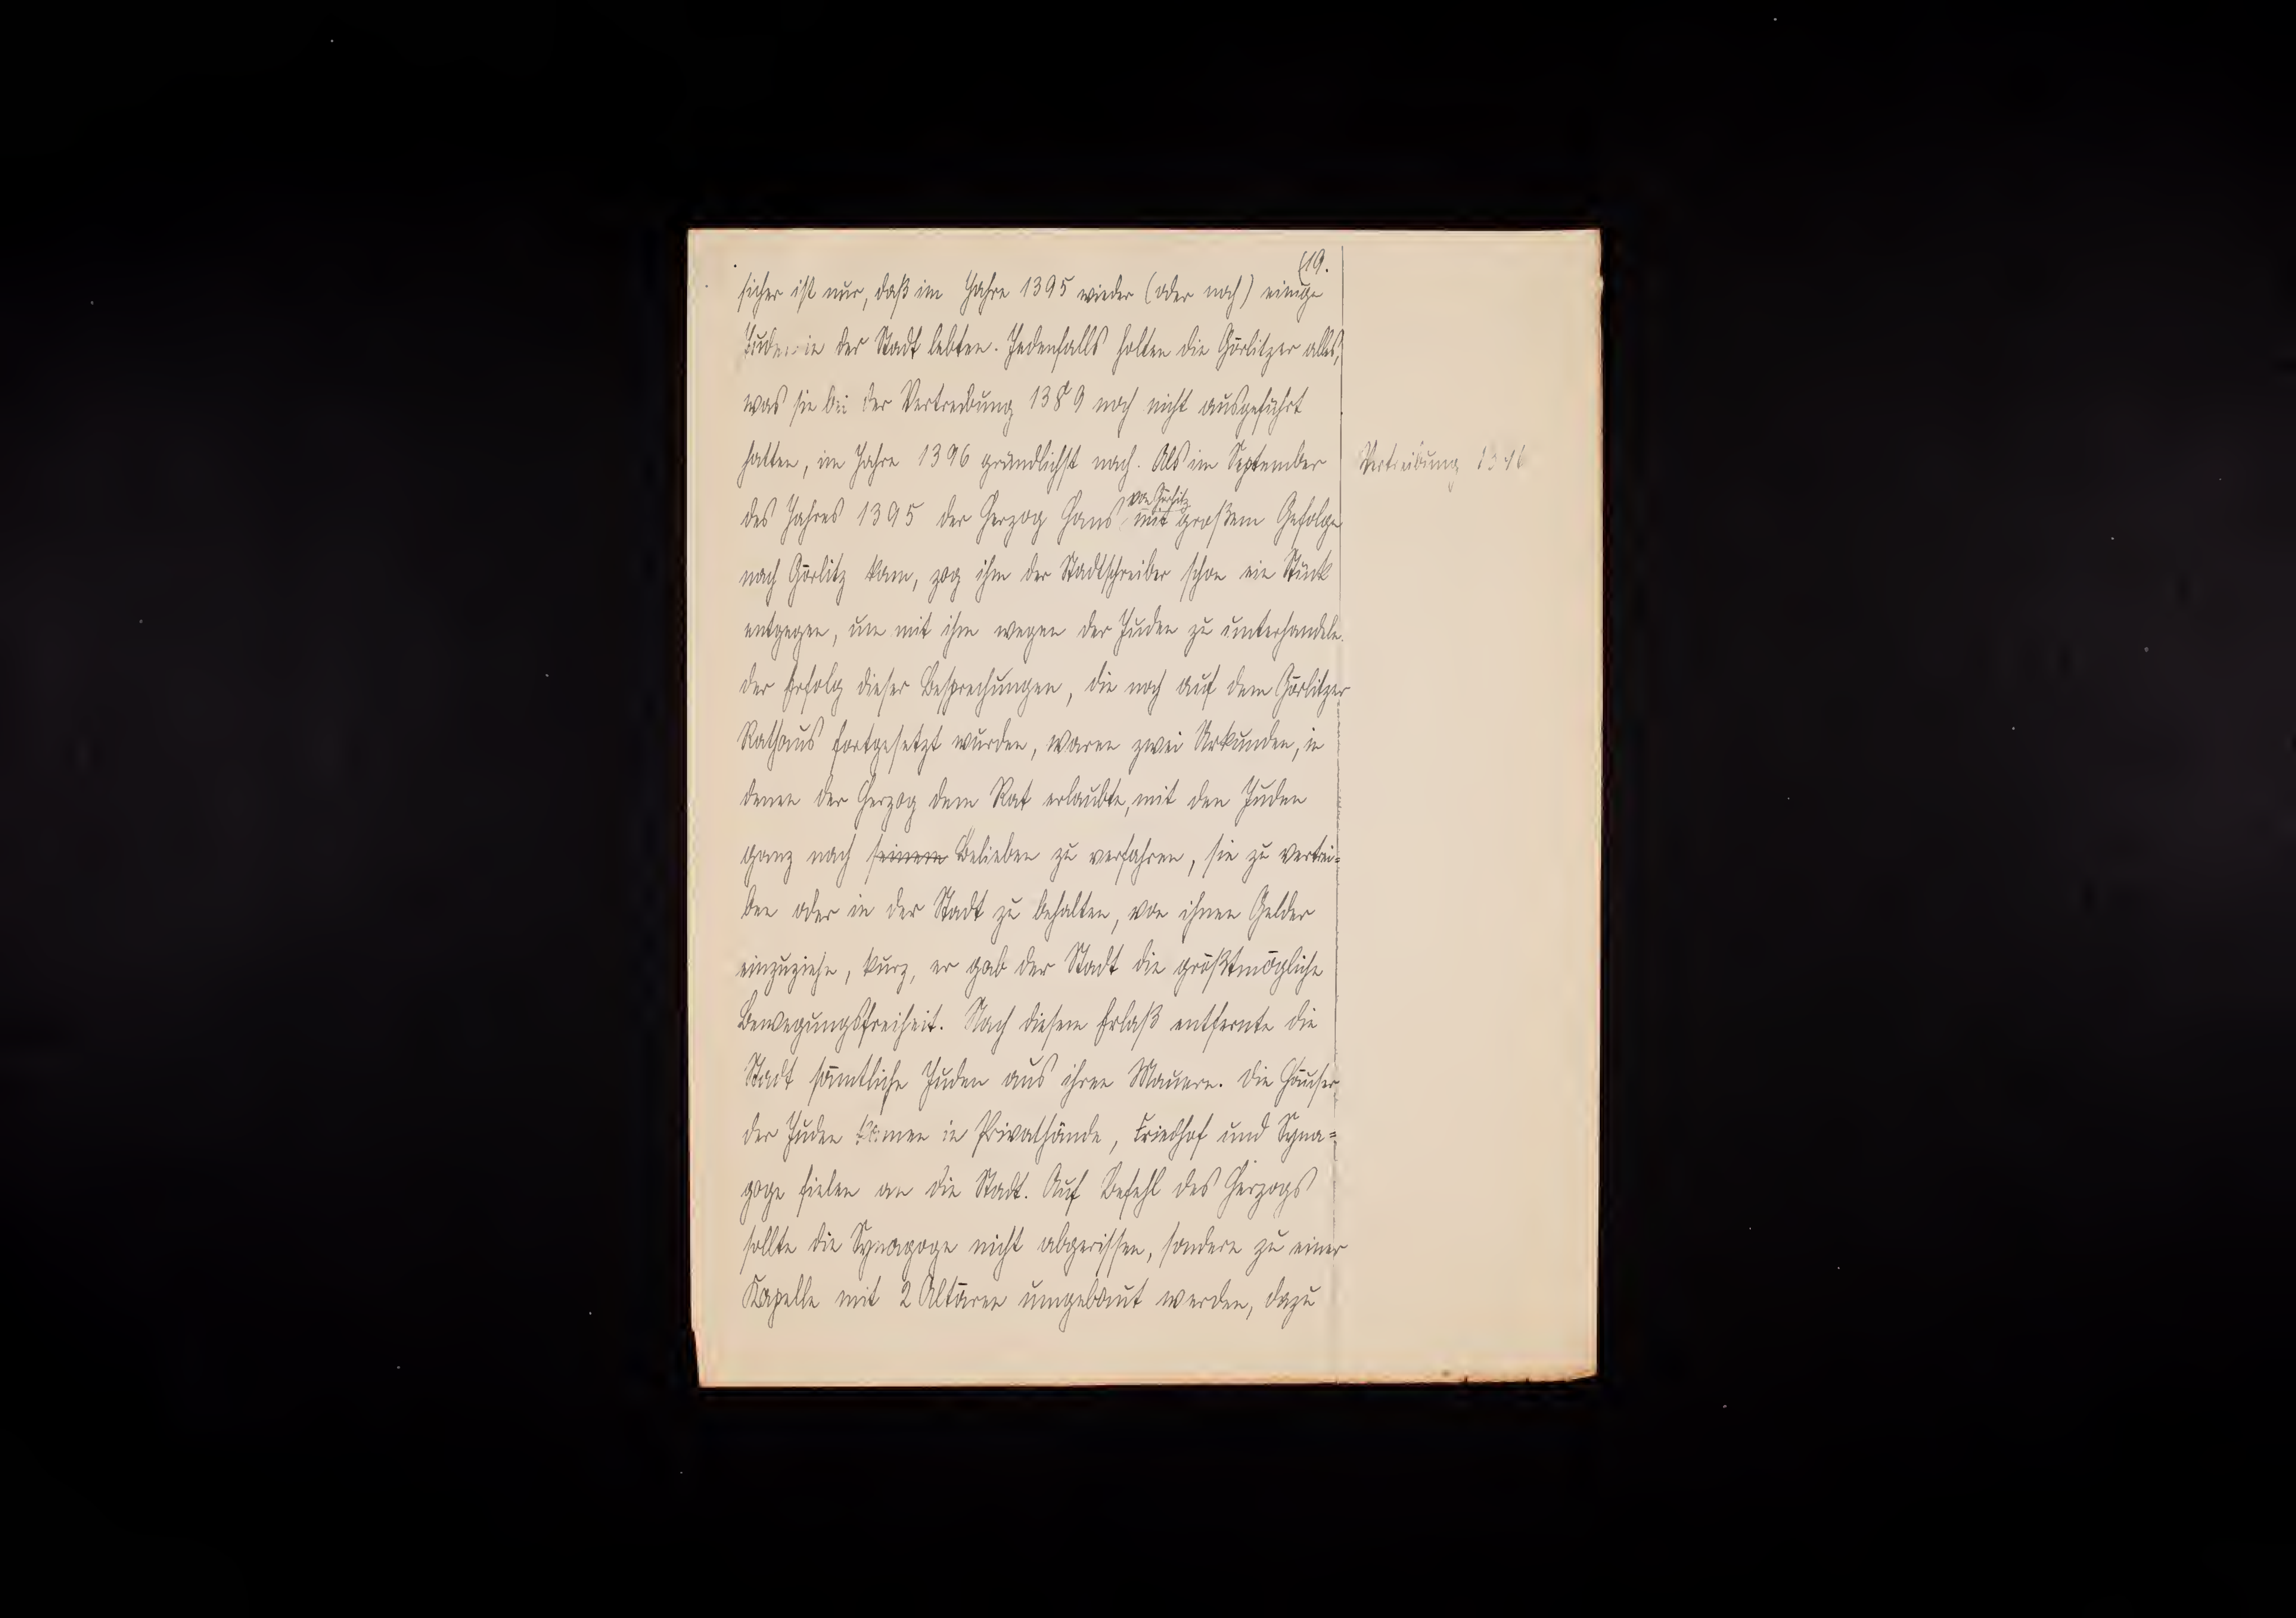 19.
sicher ist nur, daß im Jahre 1395 wieder (oder noch) einige
Juden in der Stadt lebten. Jedenfalls holten die Görlitzer alles,
was sie bei der Vertreibung 1389 noch nicht ausgeführt
hatten, im Jahre 1396 gründlichst nach. Als im September
Vertreibung 1396
des Jahres 1395 der Herzog Hans von Görlitz mit großem Gefolge
nach Görlitz kam, zog ihm der Stadtschreiber schon ein Stück
entgegen, um mit ihm wegen der Juden zu unterhandeln.
der Erfolg dieser Besprechungen, die noch auf dem Görlitzer
Rathaus fortgesetzt wurden, waren zwei Urkunden, in
denen der Herzog dem Rat erlaubte, mit den Juden
ganz nach seinem Belieben zu verfahren, sie zu vertrei=
ben oder in der Stadt zu behalten, von ihnen Gelder
einzuziehn, kurz, er gab der Stadt die größtmögliche
Bewegungsfreiheit. Nach diesem Erlaß entfernte die
Stadt sämtliche Juden aus ihren Mauern. Die Häuser
der Juden kamen in Privathände, Friedhof und Syna=
goge fielen an die Stadt. Auf Befehl des Herzogs
sollte die Synagoge nicht abgerissen, sondern zu einer
Kapelle mit 2 Altären umgebaut werden, dazu